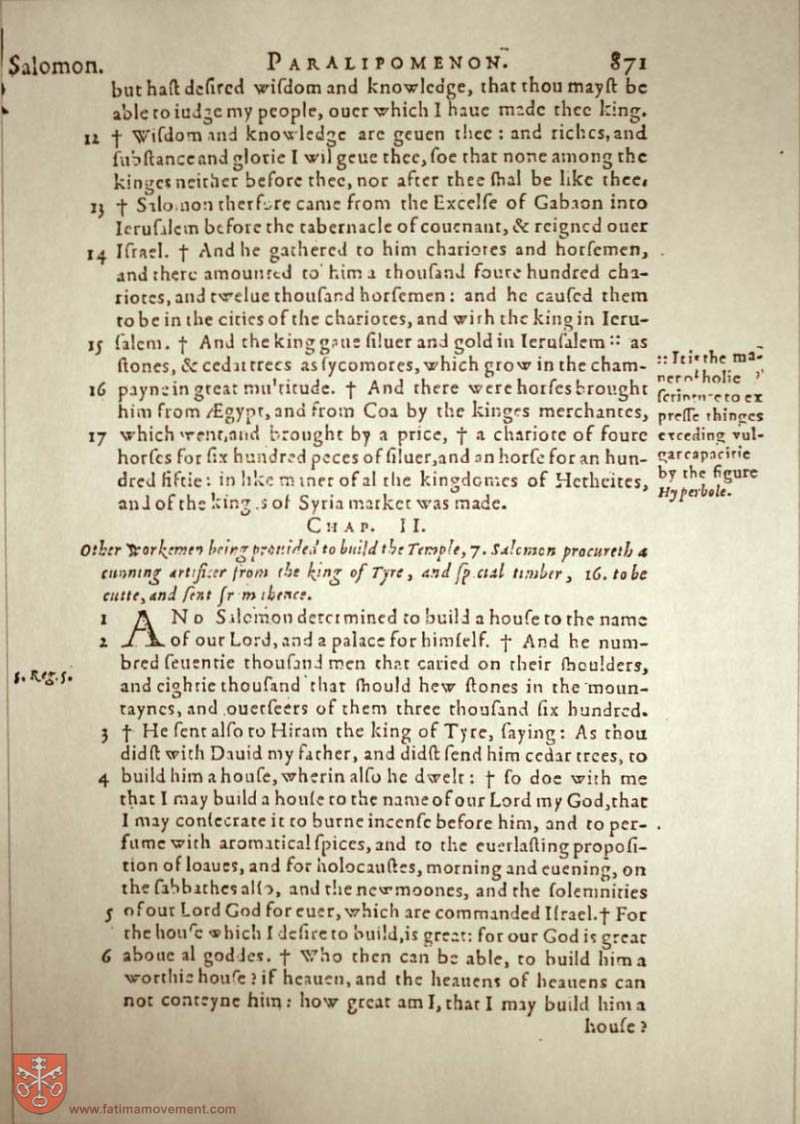 Salomon. PARALIPOMENON. 871
but haſt deſired wiſdom and knowledge, that thou mayſt be
able to iudge my people, ouer which I haue made thee king.
12 † Wiſdom and knowledge are geuen thee: and riches, and
ſubſtance and glorie I wil geue thee, ſoe that none among the
kinges neither before thee, nor after thee ſhal be like thee,
13 † Salomon therfore came from the Excelſe of Gabaon into
Ieruſalem before the tabernacle of couenant, & reigned ouer
14 Iſrael. † And he gathered to him chariotes and horſemen,
and there amounted to him a thouſand foure hundred cha-
riotes, and twelue thouſand horſemen: and he cauſed them
to be in the cities of the chariotes, and with the king in Ieru-
15 ſalem. † And the king gaue ſiluer and gold in Ieruſalem :: as
ſtones, & cedar trees as ſycomores, which grow in the cham-
16 payne in great multitude. † And there were horſes brought
him from Ægypt, and from Coa by the kinges merchantes,
17 which went, and brought by a price, † a chariote of foure
horſes for ſix hundred peces of ſiluer, and an horſe for an hun-
dred fiftie: in like maner of al the kingdomes of Hetheites,
and of the kinges of Syria market was made.
:: It is the ma-
ner of holie
ſcripture to ex
preſſe thinges
exceding vul-
gar capacitie
by the figure
Hyperbole.
CHAP. II.
Other workemen being prouided to build the Temple, 7. Salomon procureth a
cunning artificer from the king of Tyre, and ſpecial timber, 16. to be
cutte, and ſent from thence.
1 AND Salomon determined to build a houſe to the name
2 of our Lord, and a palace for himſelf. † And he num-
bred ſeuentie thouſand men that caried on their ſhoulders,
3. Reg. 5.
and eightie thouſand that ſhould hew ſtones in the moun-
taynes, and ouerſeers of them three thouſand ſix hundred.
3 † He ſent alſo to Hiram the king of Tyre, ſaying: As thou
didſt with Dauid my father, and didſt ſend him cedar trees, to
4 build him a houſe, wherin alſo he dwelt: † ſo doe with me
that I may build a houſe to the name of our Lord my God, that
I may conſecrate it to burne incenſe before him, and to per-
fume with aromatical ſpices, and to the euerlaſting propoſi-
tion of loaues, and for holocauſtes, morning and euening, on
the ſabbathes alſo, and the newmoones, and the ſolemnities
5 of our Lord God for euer, which are commanded Iſrael. † For
the houſe which I deſire to build, is great: for our God is great
6 aboue al goddes. † Who then can be able, to build him a
worthie houſe? if heauen, and the heauens of heauens can
not conteyne him: how great am I, that I may build him a
houſe?
www.fatimamovement.com